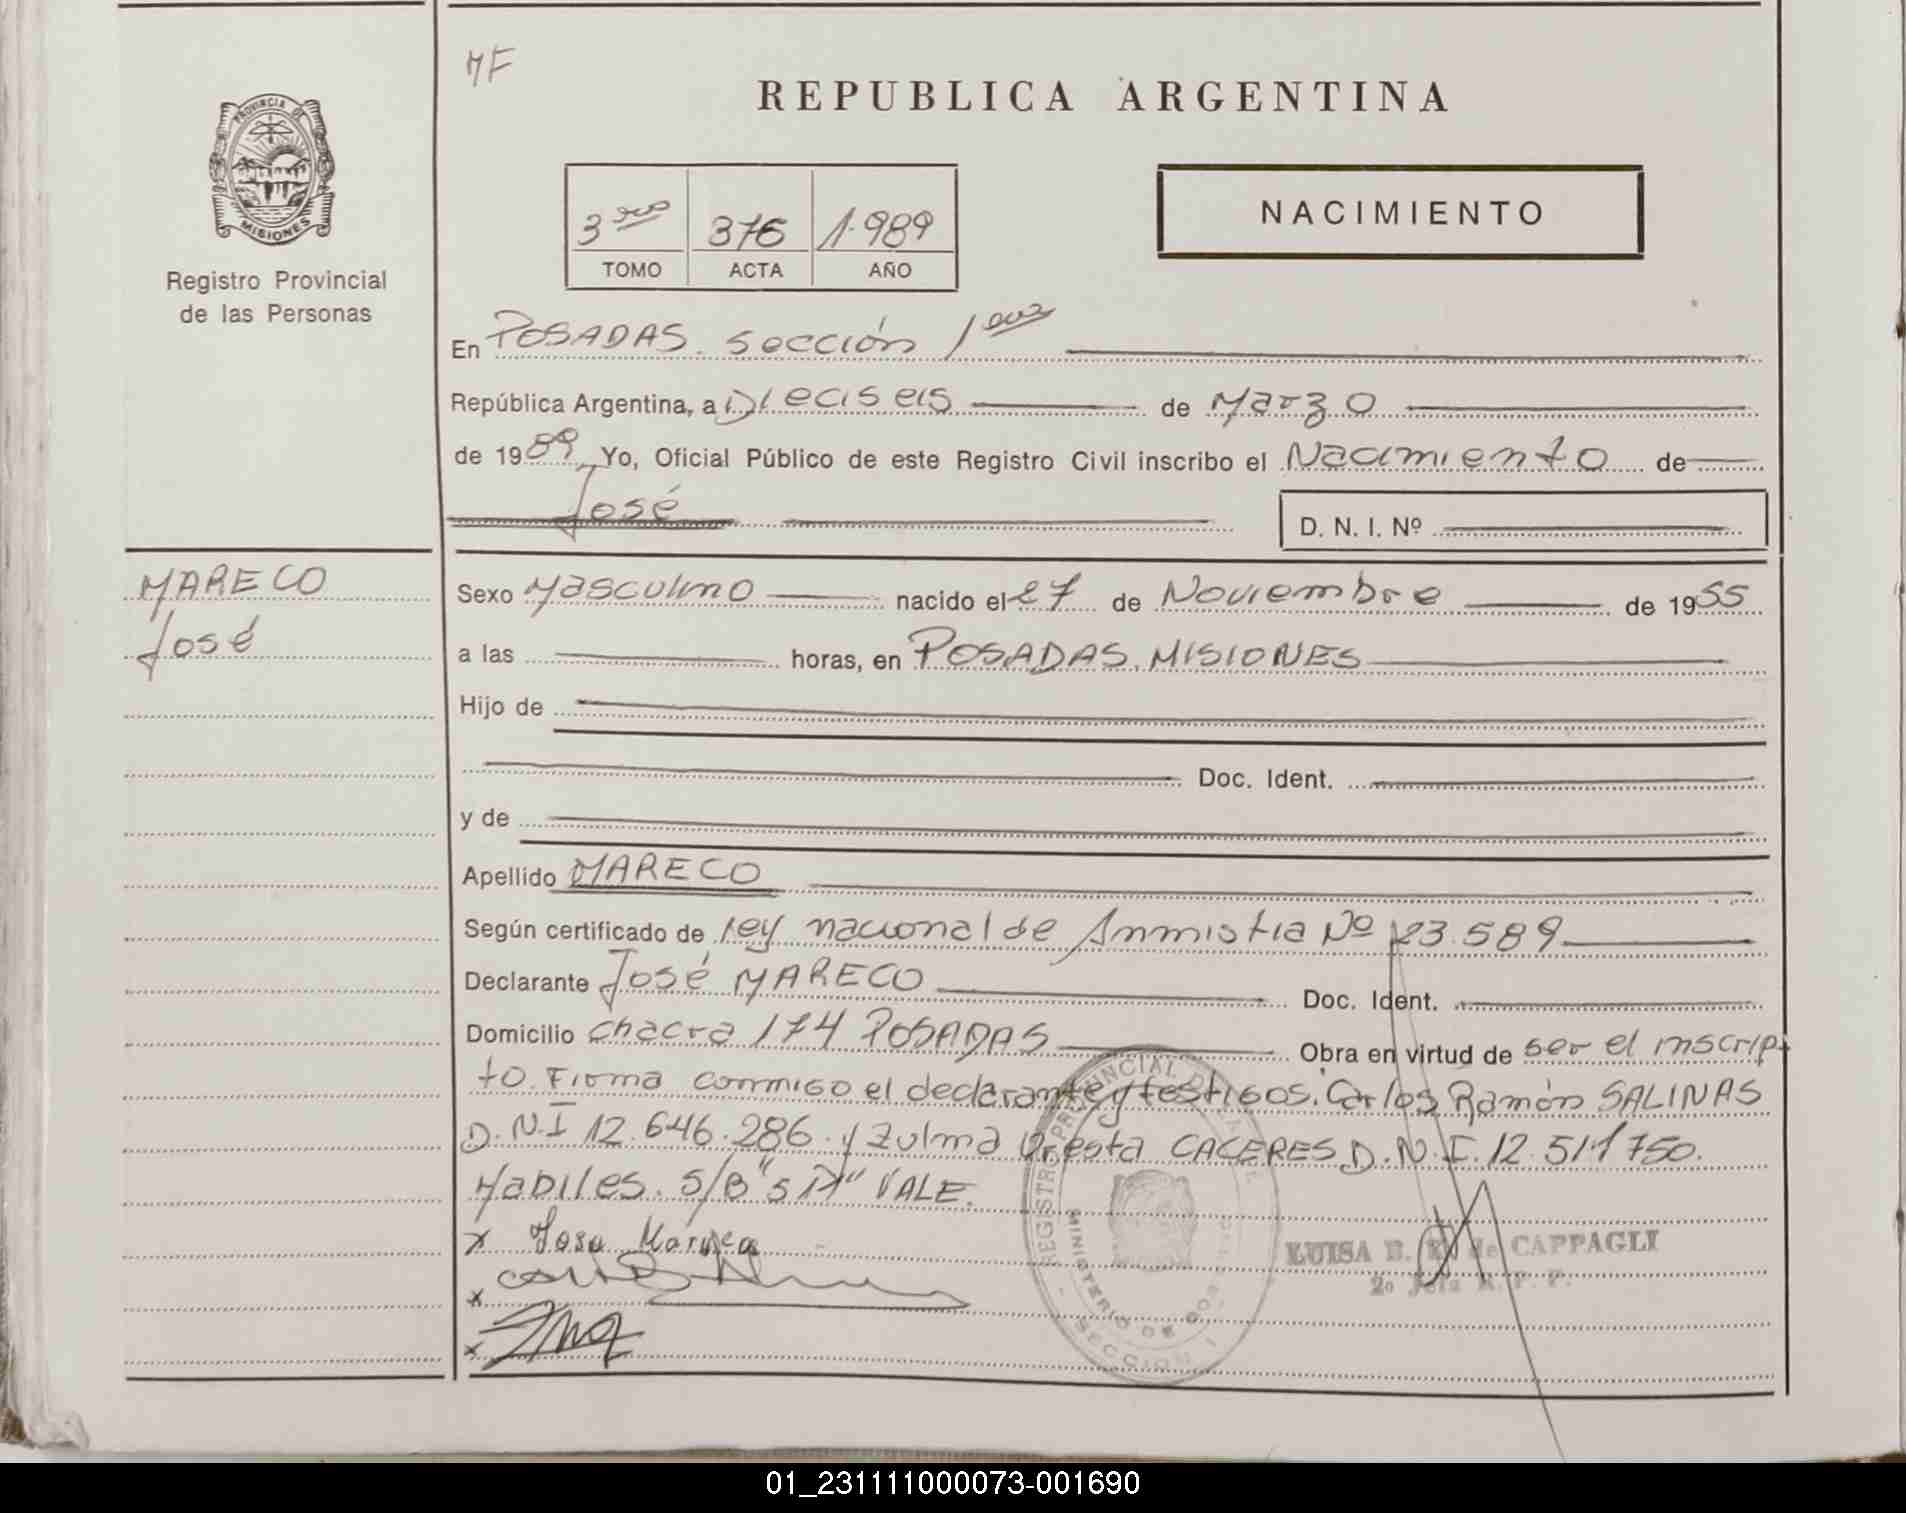 MF
REPUBLICA ARGENTINA
PROVINCIA DE
MISIONES
Registro Provincial
de las Personas
3ero 376 1.989
TOMO ACTA AÑO
NACIMIENTO
En POSADAS. sección 1era
República Argentina, a Dieciseis de Marzo
de 1989 Yo, Oficial Público de este Registro Civil inscribo el Nacimiento de
José
D. N. I. Nº
MARECO
José
Sexo Masculino nacido el 27 de Noviembre de 1955
a las horas, en POSADAS. MISIONES
Hijo de
Doc. Ident.
y de
Apellido MARECO
Según certificado de ley nacional de Anmistia Nº 23.589
Declarante José MARECO Doc. Ident.
Domicilio chacra 174 POSADAS Obra en virtud de ser el inscrip
to. Firma conmigo el declarante y testigos. Carlos Ramón SALINAS
D.N.I 12.646.286. y Zulma CACERES D.N.I. 12.511750.
Habiles. S/B "5 VALE.
x
x
x
REGISTRO PROVINCIAL DE LAS
MINISTERIO DE GOB
SECCION 1
LUISA B. de CAPPAGLI
2º Jefa R. P. P.
01_231111000073-001690